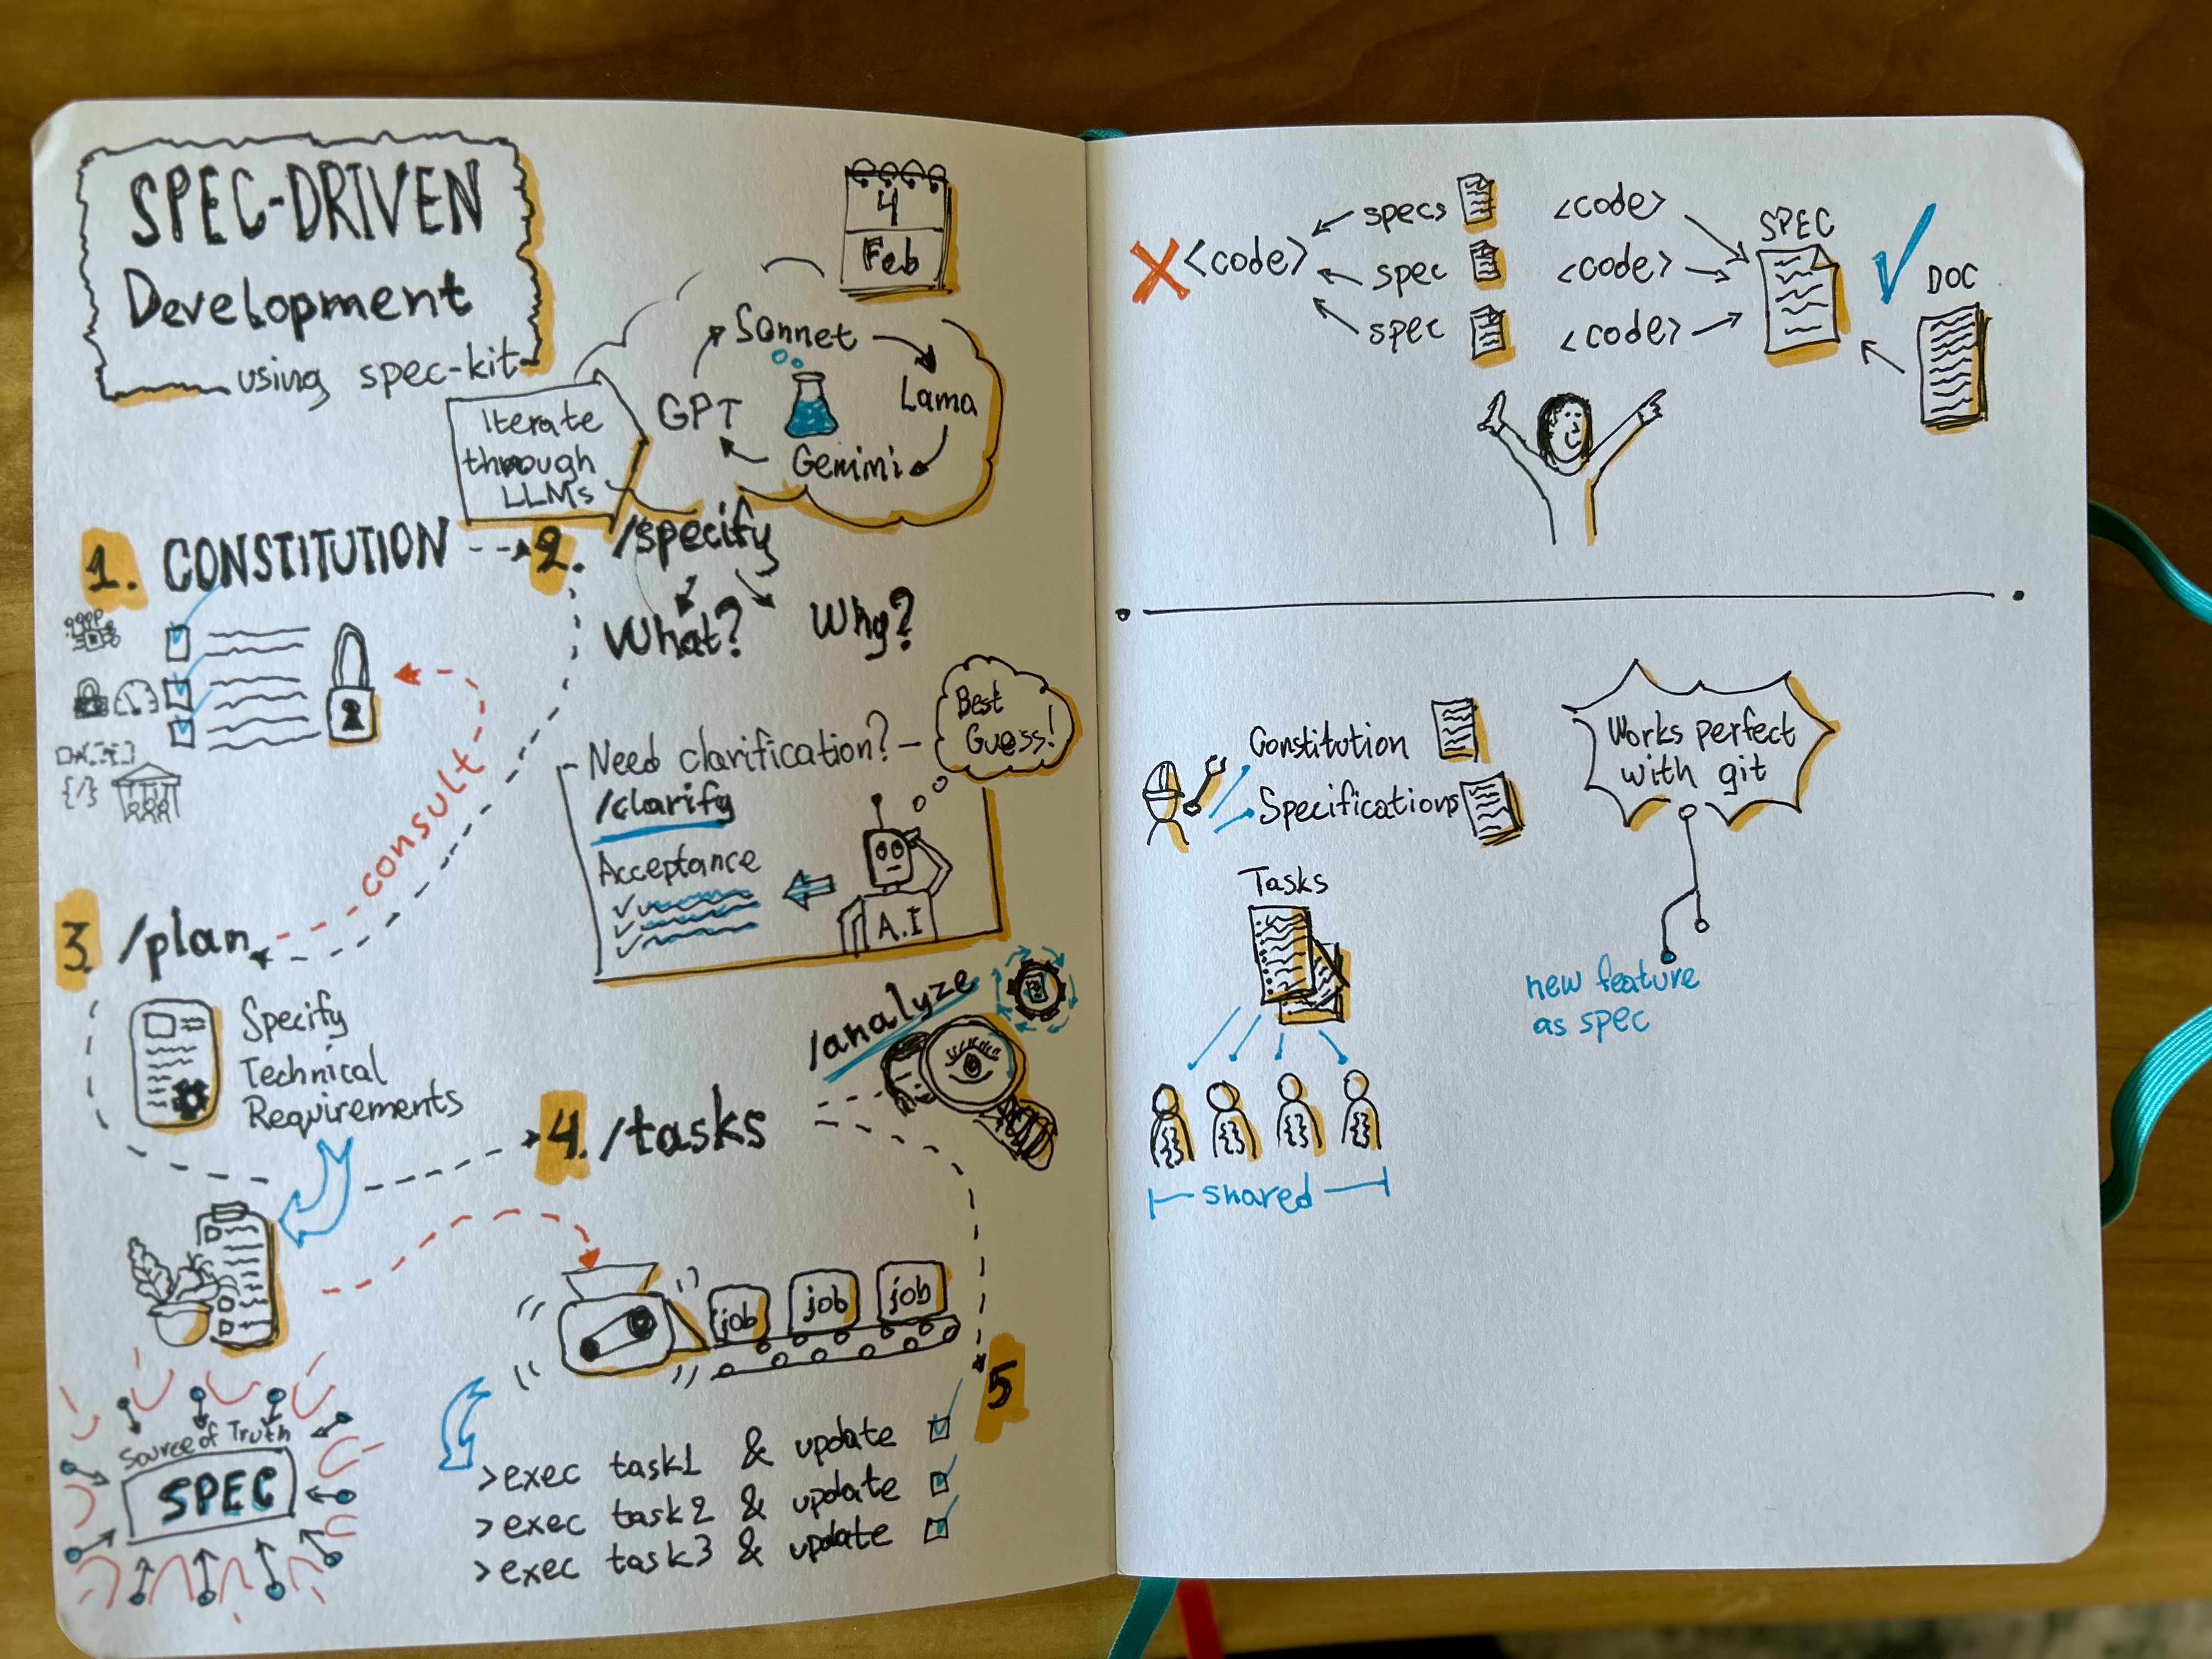 SPEC-DRIVEN
Development
using spec-kit
4
Feb
Iterate
through
LLMs
Sonnet
Lama
Gemini
GPT
1. CONSTITUTION
2. /specify
What?
Why?
Need clarification?
/clarify
Best
Guess!
Acceptance
A.I
consult
3. /plan
Specify
Technical
Requirements
/analyze
4. /tasks
job
job
job
Source of Truth
SPEC
5
>exec task1 & update
>exec task2 & update
>exec task3 & update
<code>
specs
spec
spec
<code>
<code>
<code>
SPEC
DOC
Constitution
Specifications
Works perfect
with git
Tasks
new feature
as spec
shared